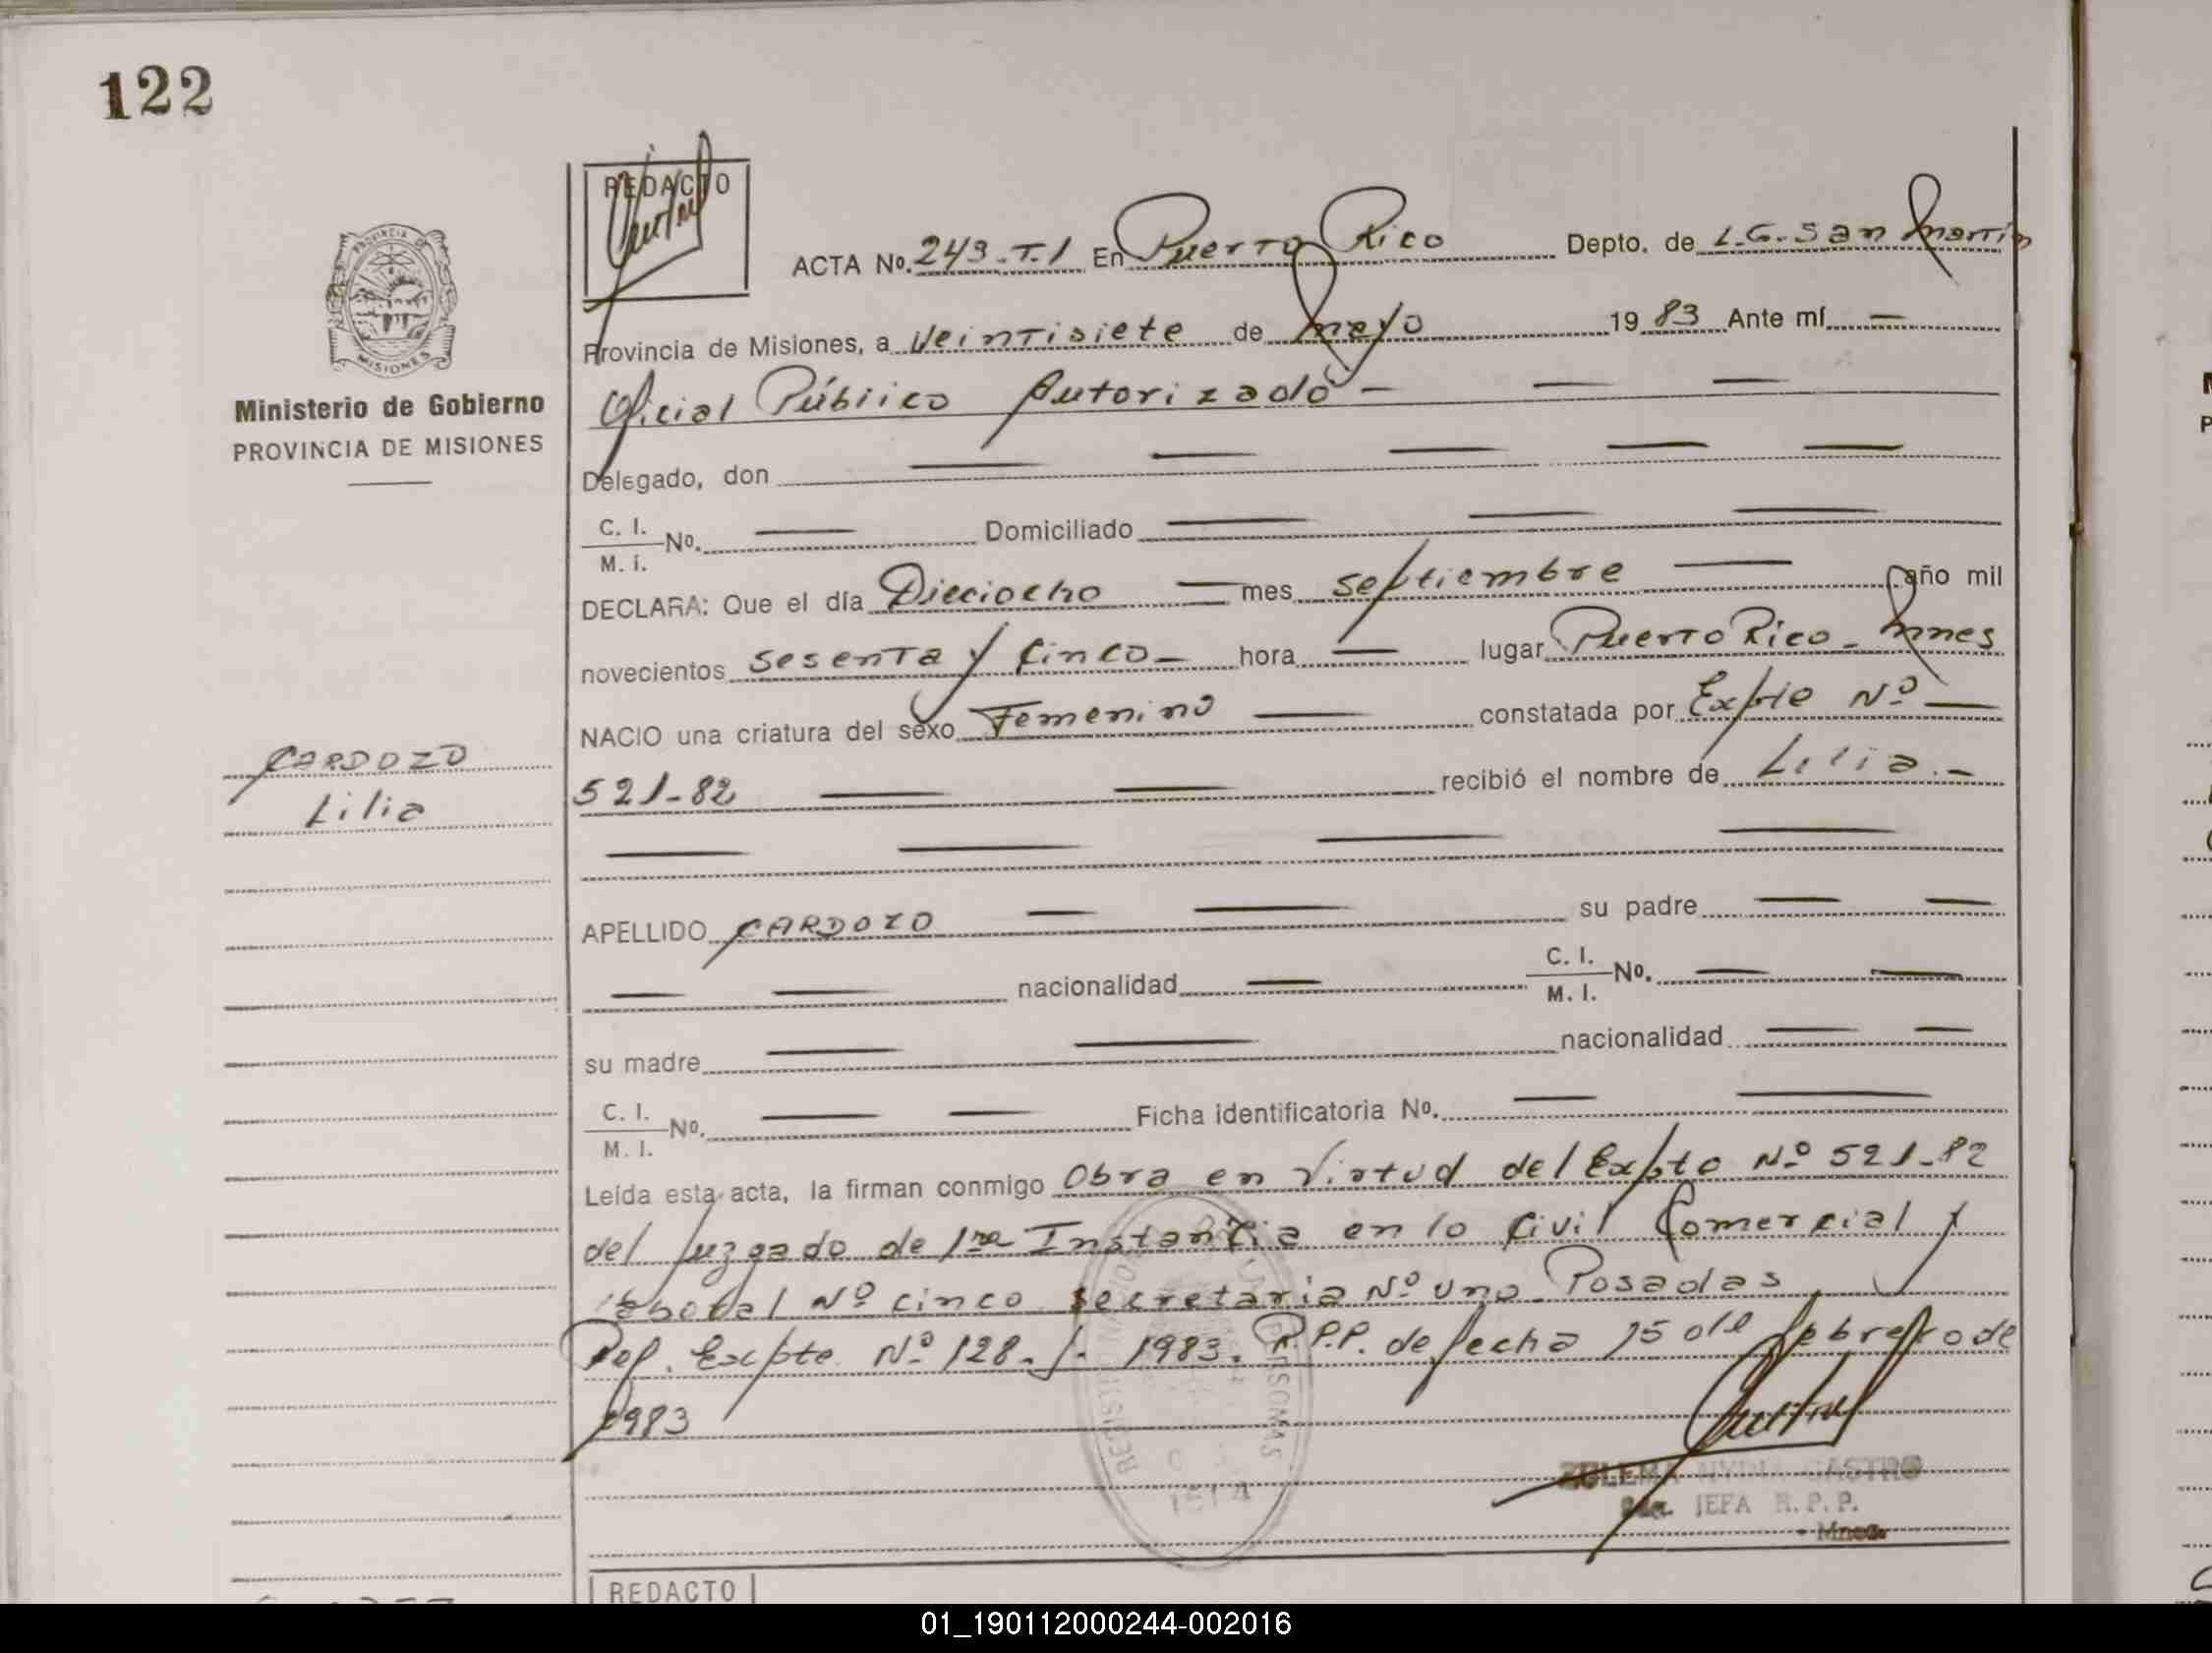 122
REDACTO
ACTA No. 243-T.1 En Puerto Rico Depto. de L.G. San Martín
Provincia de Misiones, a Veintisiete de mayo 1983 Ante mí —
Oficial Público Autorizado — — —
Delegado, don — — — — —
C. I. / M. I. No. — Domiciliado — — —
DECLARA: Que el día Dieciocho — mes septiembre — año mil
novecientos sesenta y cinco — hora — lugar Puerto Rico - Mnes
NACIO una criatura del sexo Femenino — constatada por Expte Nº —
521-82 — — recibió el nombre de Lilia. —
— — — —
APELLIDO CARDOZO — — su padre — —
— — nacionalidad — C. I. / M. I. No. — —
su madre — — nacionalidad — —
C. I. / M. I. No. — — Ficha identificatoria No. — —
Leída esta acta, la firman conmigo Obra en Virtud del Expte Nº 521-82
del Juzgado de 1ra Instancia en lo Civil Comercial y
laboral Nº cinco secretaria Nº uno. Posadas
Ref. Expte Nº 128-/- 1983. R.P.P. de fecha 15 de febrero de
1983
ZULEMA NYDIA CASTRO
JEFA R.P.P.
Mnes.
PROVINCIA DE
MISIONES
Ministerio de Gobierno
PROVINCIA DE MISIONES
CARDOZO
Lilia
REDACTO
01_190112000244-002016